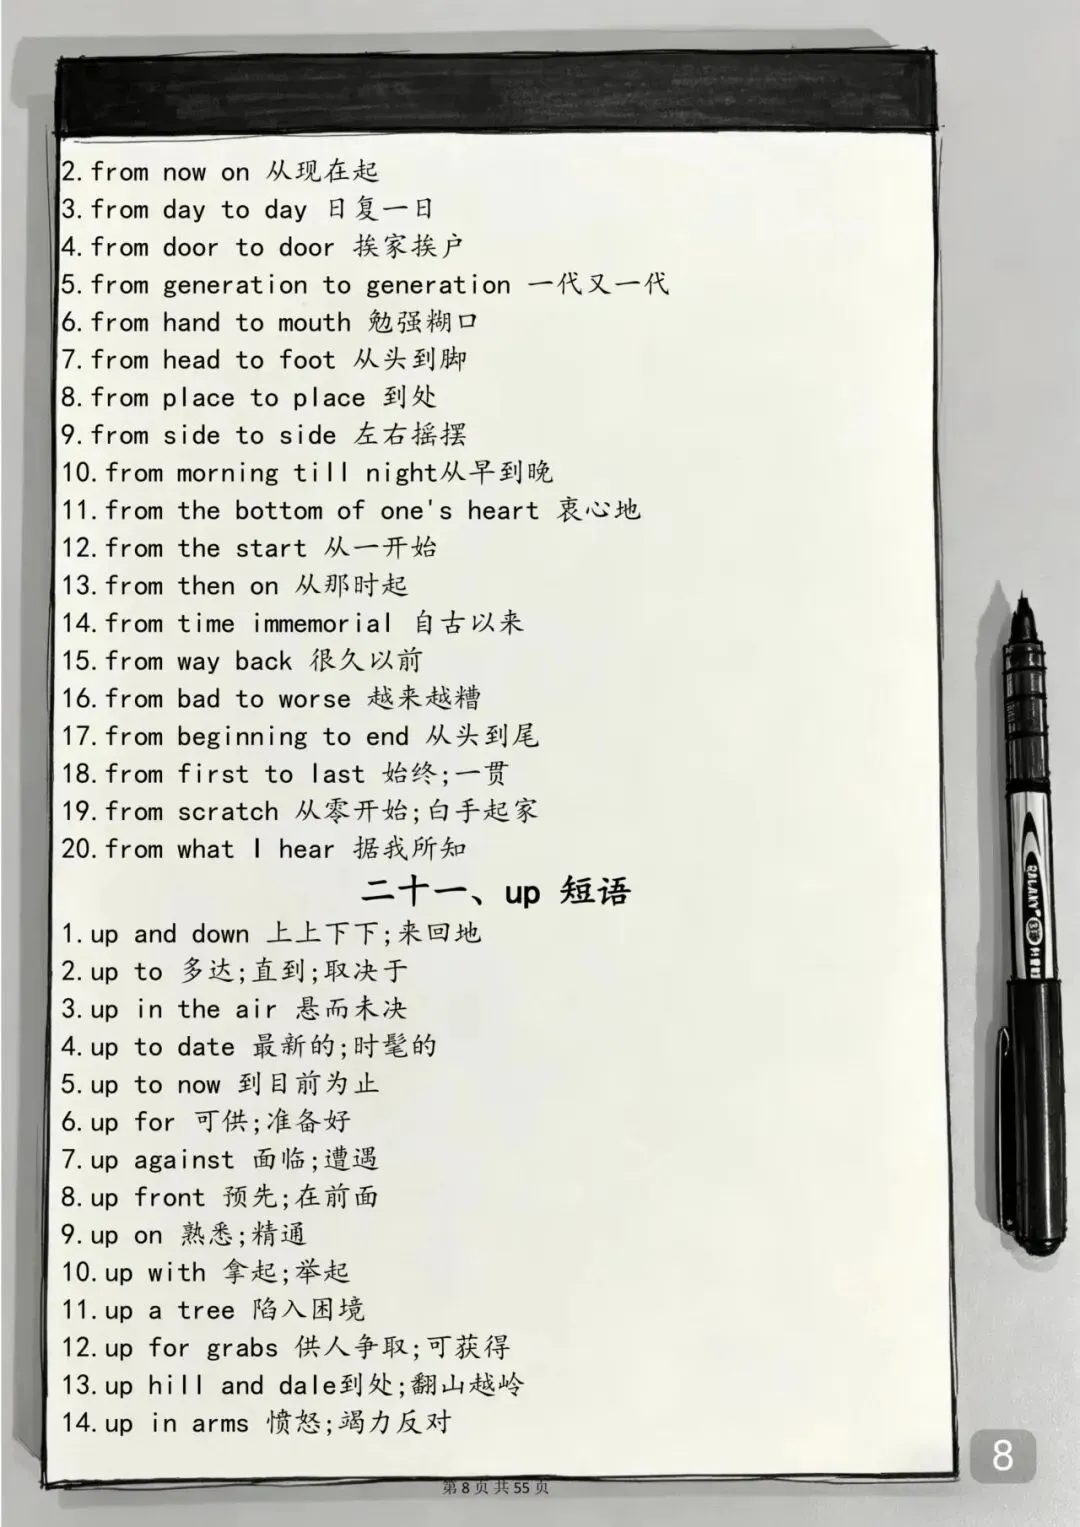 2.from now on 从现在起
3.from day to day 日复一日
4.from door to door 挨家挨户
5.from generation to generation 一代又一代
6.from hand to mouth 勉强糊口
7.from head to foot 从头到脚
8.from place to place 到处
9.from side to side 左右摇摆
10.from morning till night从早到晚
11.from the bottom of one's heart 衷心地
12.from the start 从一开始
13.from then on 从那时起
14.from time immemorial 自古以来
15.from way back 很久以前
16.from bad to worse 越来越糟
17.from beginning to end 从头到尾
18.from first to last 始终;一贯
19.from scratch 从零开始;白手起家
20.from what I hear 据我所知
二十一、up 短语
1.up and down 上上下下;来回地
2.up to 多达;直到;取决于
3.up in the air 悬而未决
4.up to date 最新的;时髦的
5.up to now 到目前为止
6.up for 可供;准备好
7.up against 面临;遭遇
8.up front 预先;在前面
9.up on 熟悉;精通
10.up with 拿起;举起
11.up a tree 陷入困境
12.up for grabs 供人争取;可获得
13.up hill and dale到处;翻山越岭
14.up in arms 愤怒;竭力反对
第 8 页 共 55 页
8